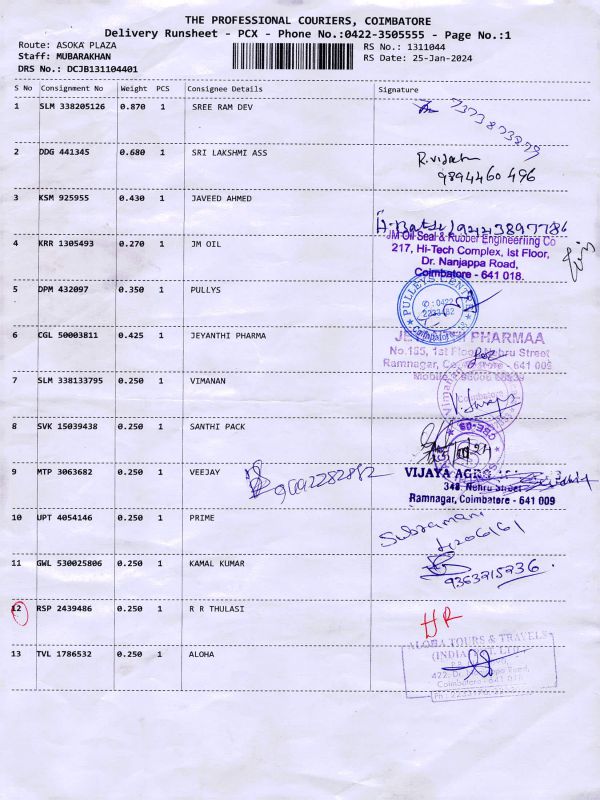 THE PROFESSIONAL COURIERS, COIMBATORE
Delivery Runsheet - PCX - Phone No.:0422-3505555 - Page No.:1
Route: ASOKA PLAZA
RS No.: 1311044
Staff: MUBARAKHAN
RS Date: 25-Jan-2024
DRS No.: DCJB131104401
S No Consignment No Weight PCS Consignee Details Signature
1 SLM 338205126 0.870 1 SREE RAM DEV
2 DDG 441345 0.680 1 SRI LAKSHMI ASS R.Vijaya
9894460 496
3 KSM 925955 0.430 1 JAVEED AHMED
9443897786
4 KRR 1305493 0.270 1 JM OIL JM Oil Seal & Rubber Engineering Co
217, Hi-Tech Complex, Ist Floor,
Dr. Nanjappa Road,
Coimbatore - 641 018.
5 DPM 432097 0.350 1 PULLYS PULLEYS CENTRE
✆: 0422
Coimbatore
6 CGL 50003811 0.425 1 JEYANTHI PHARMA PHARMAA
No.155, 1st Floor, Nehru Street
Ramnagar, Coimbatore - 641 009
7 SLM 338133795 0.250 1 VIMANAN
8 SVK 15039438 0.250 1 SANTHI PACK
9 MTP 3063682 0.250 1 VEEJAY VIJAYA AGRO
348, Nehru Street
Ramnagar, Coimbatore - 641 009
10 UPT 4054146 0.250 1 PRIME Subramani
4206161
11 GWL 530025806 0.250 1 KAMAL KUMAR
9363215236
12 RSP 2439486 0.250 1 R R THULASI HR
13 TVL 1786532 0.250 1 ALOHA ALOHA TOURS & TRAVELS
(INDIA) PVT. LTD.,
Coimbatore - 641 018